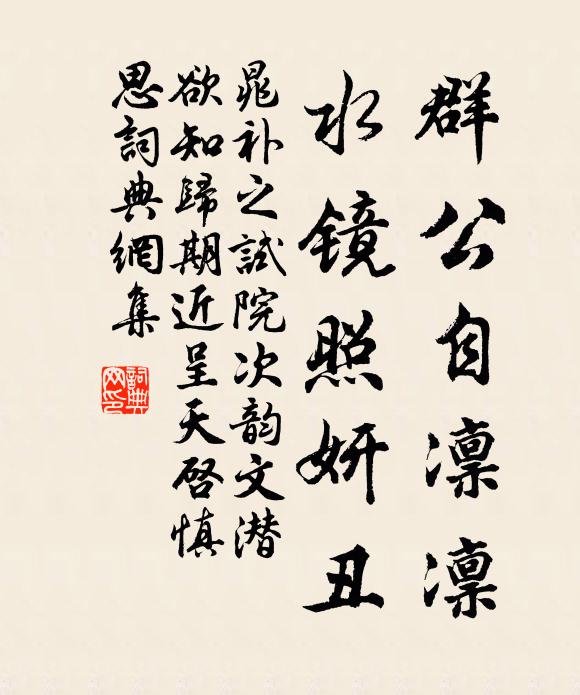 群公自凛凛
水镜照妍丑
晁补之試院次韵文潜
欲知歸期近呈天启慎
思詞典網集
詞典网印